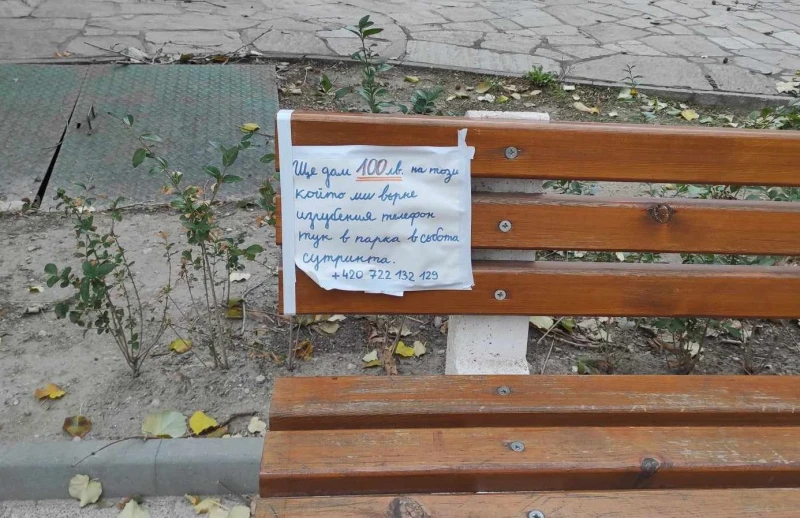 Ще дам 100лв. на този
който ми върне
изгубения телефон
тук в парка в събота
сутринта.
+420 722 132 129